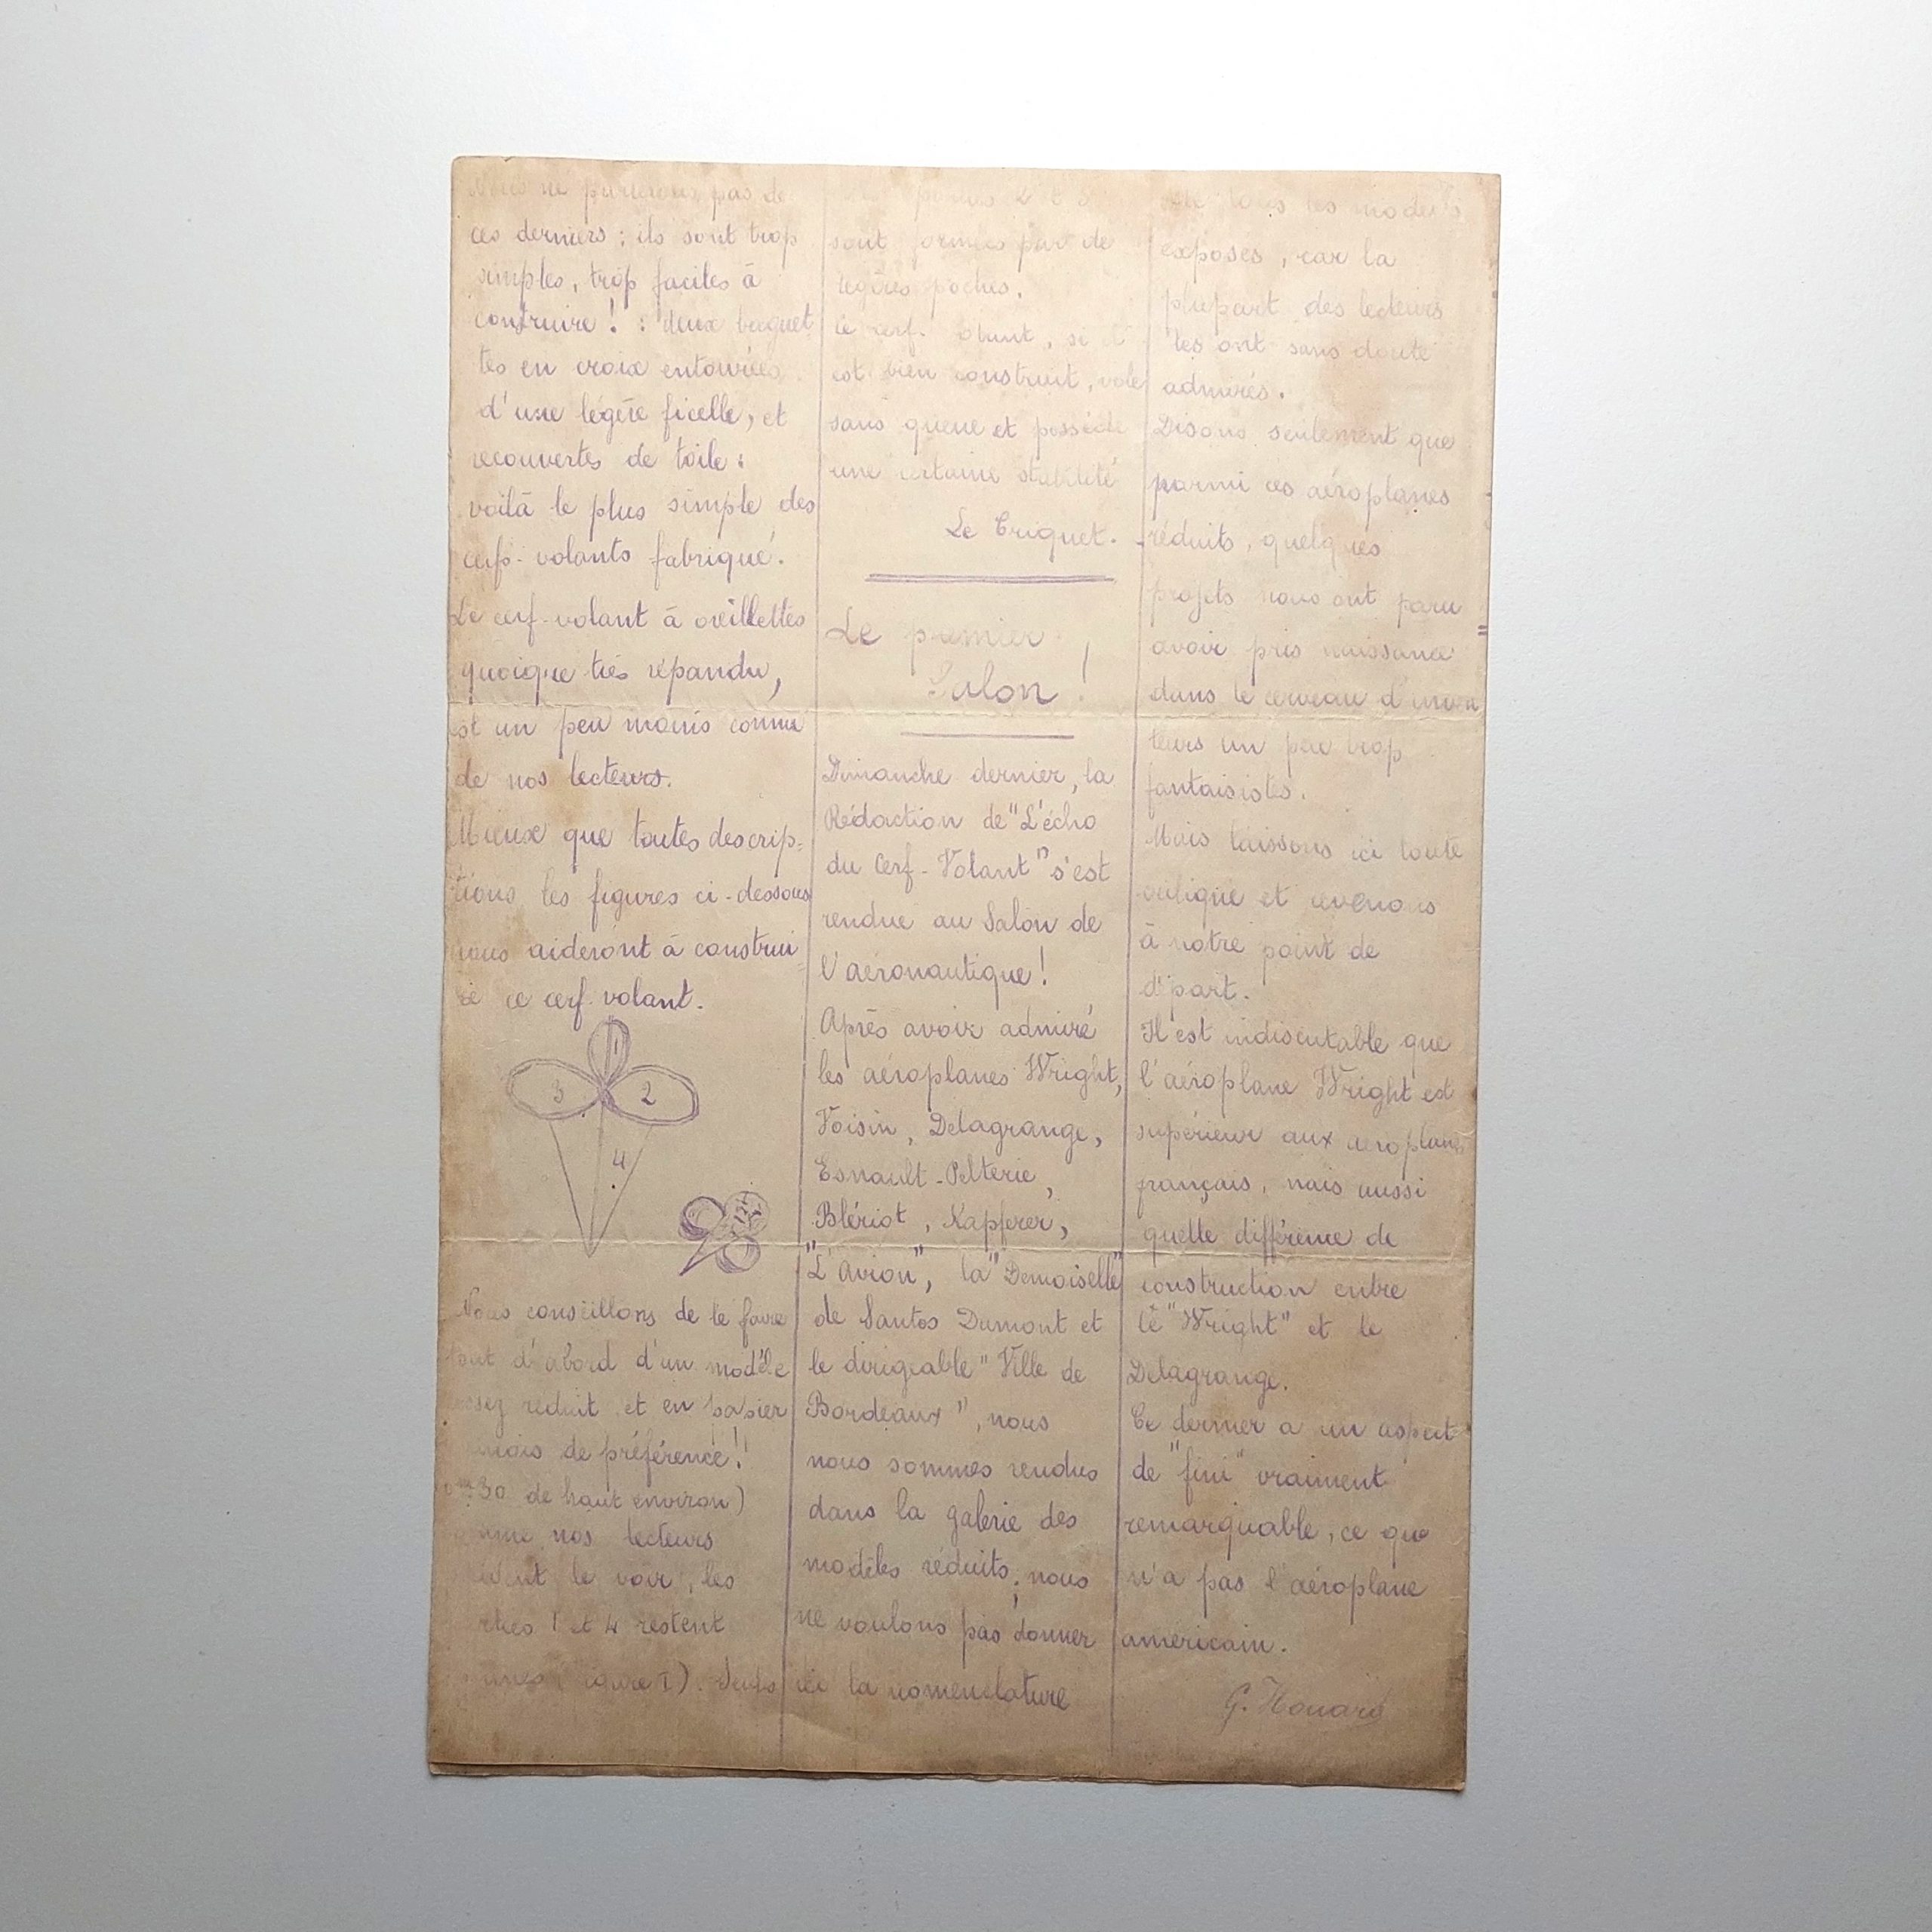 Nous ne parlerons pas de
ces derniers ; ils sont trop
simples, trop faciles à
construire ! : deux baguet
tes en croix entourées
d'une légère ficelle, et
recouvertes de toile :
voilà le plus simple des
cerfs-volants fabriqué.
Le cerf-volant à oreillettes
quoique très répandu,
est un peu moins connu
de nos lecteurs.
Mieux que toutes descrip=
tions les figures ci-dessous
vous aideront à construi=
re ce cerf-volant.
1
3 2
4
Nous conseillons de le faire
tout d'abord d'un modèle
assez réduit et en papier
de préférence !
0m30 de haut environ)
nos lecteurs
le voir, les
1 et 4 restent
I). Seules
2 et 3
sont formées par de
légères poches.
Le cerf-volant, si il
est bien construit, vole
sans queue et possède
une certaine stabilité
Le Criquet.
Le premier
Salon !
Dimanche dernier, la
Rédaction de "L'écho
du Cerf-Volant" s'est
rendue au Salon de
l'aéronautique !
Après avoir admiré
les aéroplanes Wright,
Voisin, Delagrange,
Esnault-Pelterie,
Blériot, Kapferer,
"L'Avion", la "Demoiselle"
de Santos Dumont et
le dirigeable "Ville de
Bordeaux", nous
nous sommes rendus
dans la galerie des
modèles réduits ; nous
ne voulons pas donner
ici la nomenclature
de tous les modèles
exposés, car la
plupart des lecteurs
les ont sans doute
admirés.
Disons seulement que
parmi ces aéroplanes
réduits, quelques
projets nous ont paru
avoir pris naissance
dans le cerveau d'inven
teurs un peu trop
fantaisistes.
Mais laissons ici toute
critique et revenons
à notre point de
départ.
Il est indiscutable que
l'aéroplane Wright est
supérieur aux aéroplanes
français, mais aussi
quelle différence de
construction entre
le "Wright" et le
Delagrange.
Ce dernier a un aspect
de "fini" vraiment
remarquable, ce que
n'a pas l'aéroplane
américain.
G. Houard